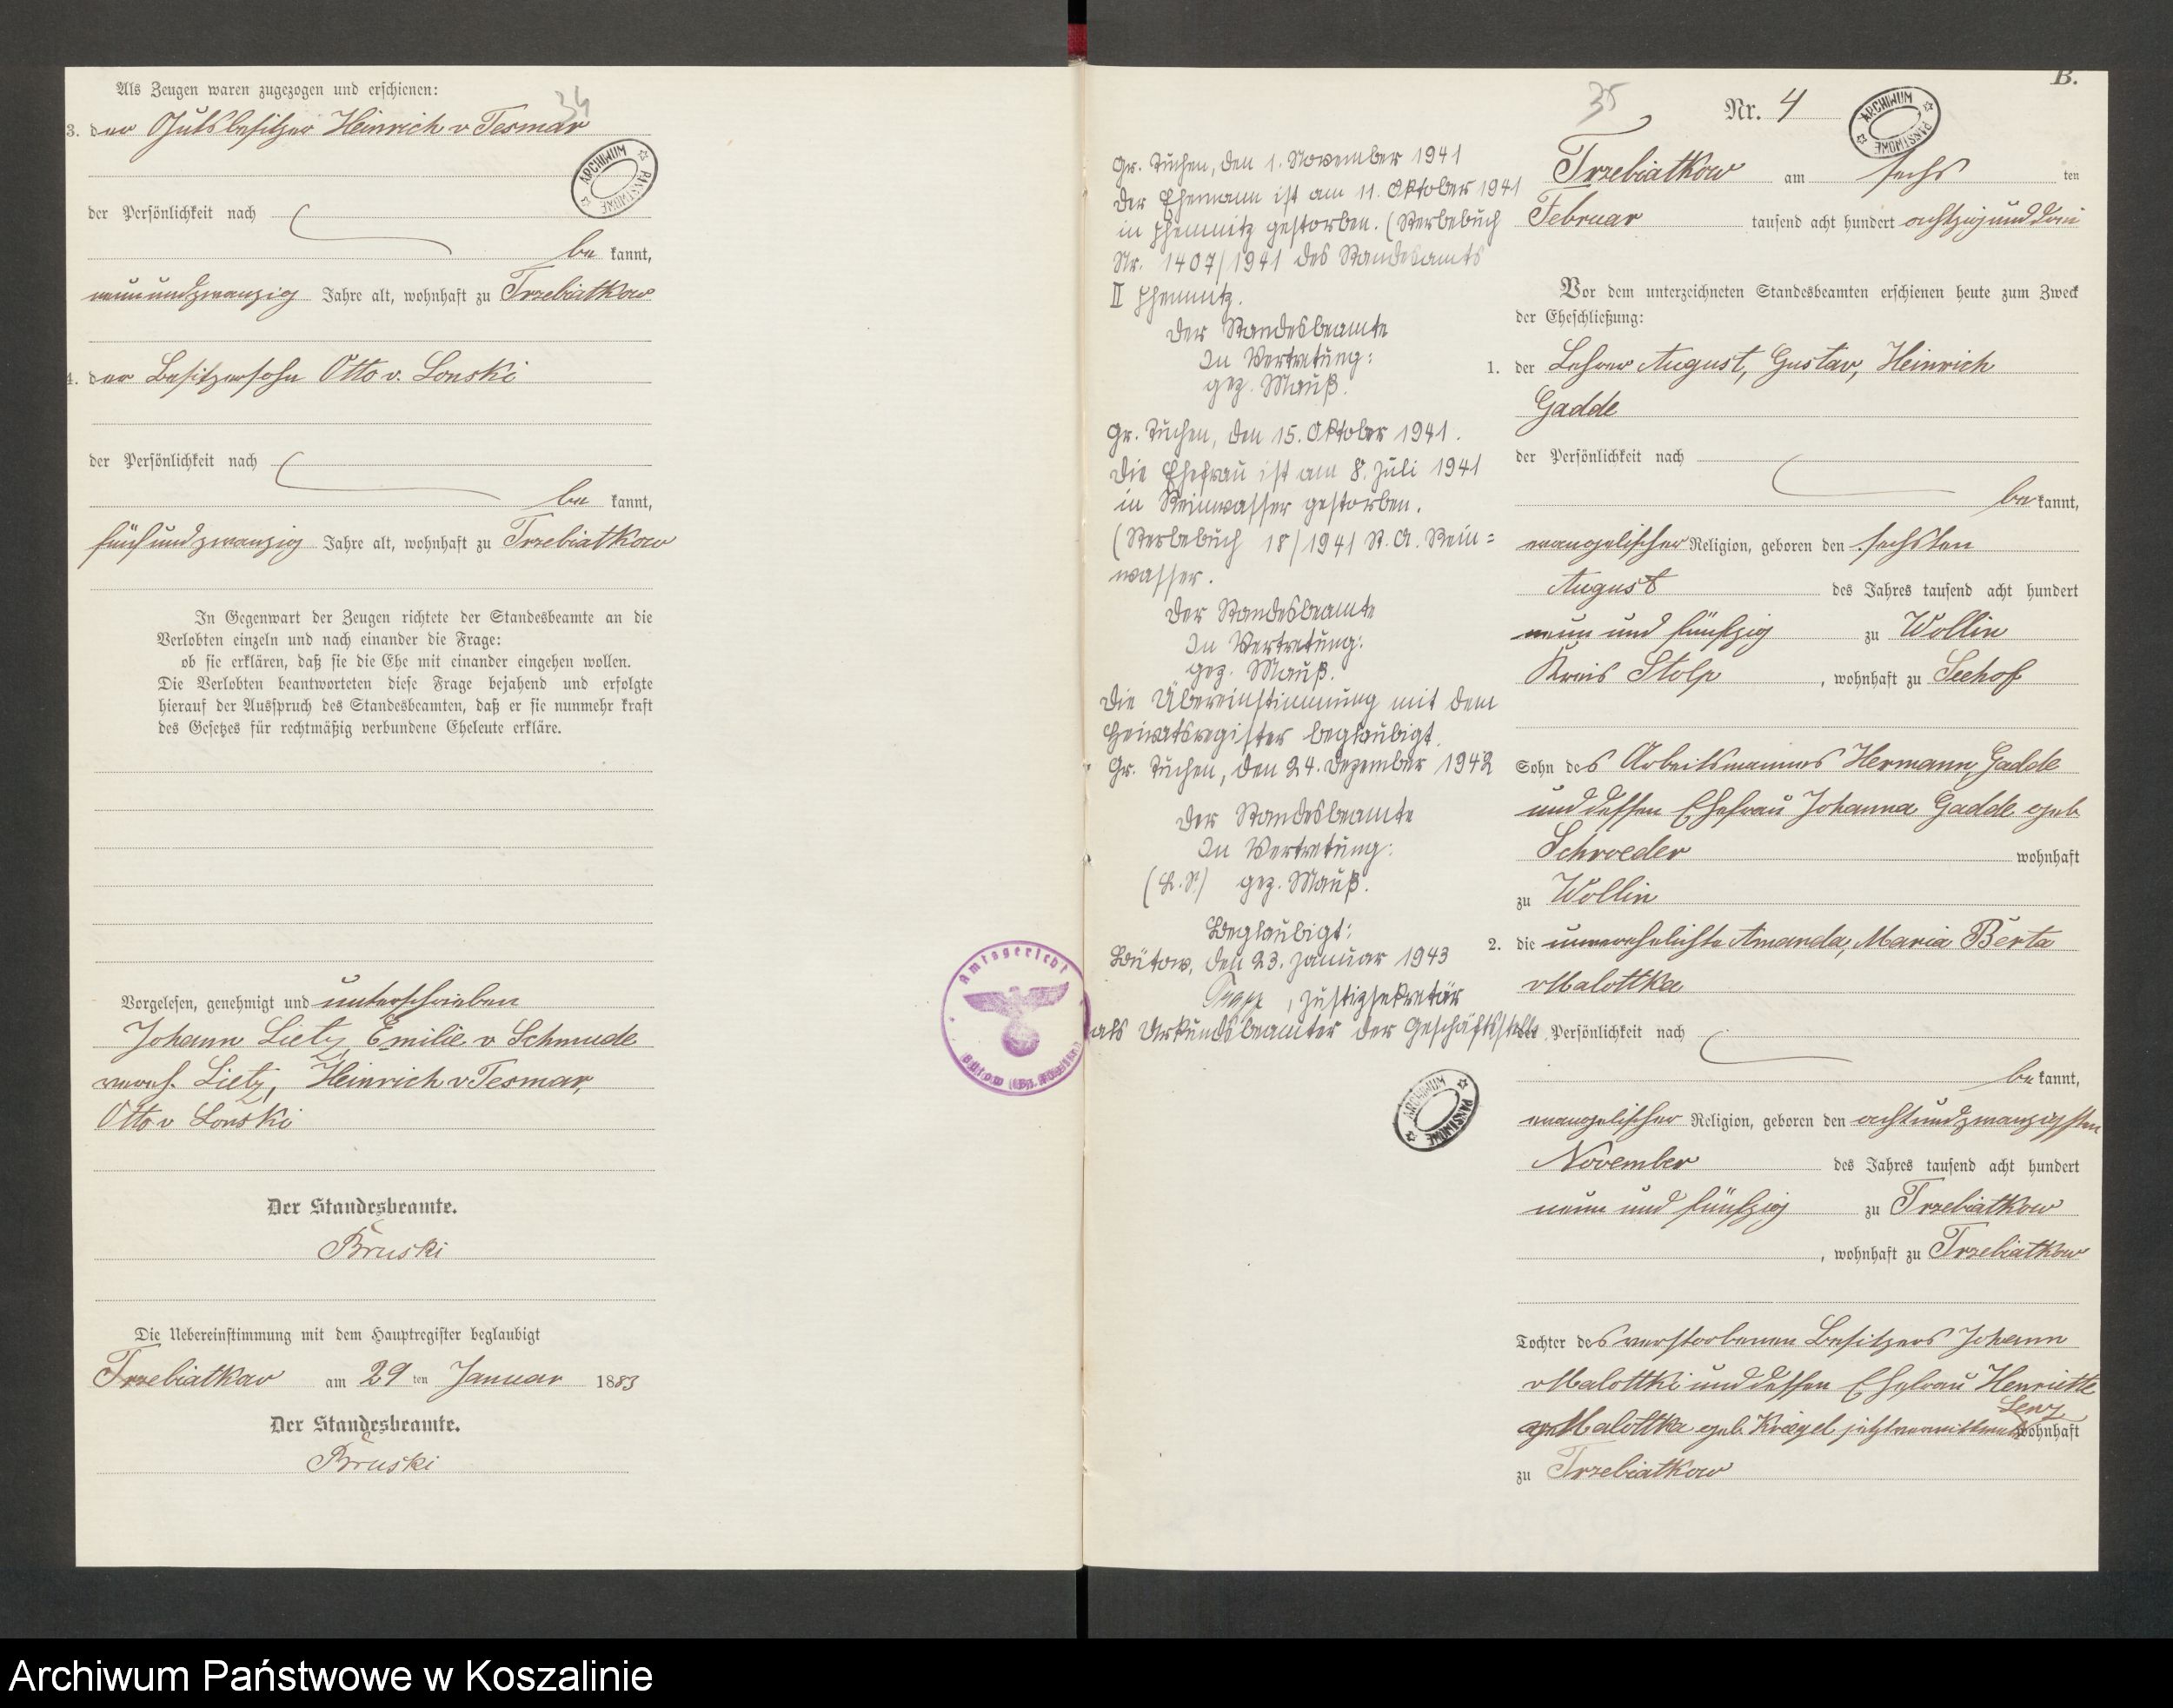 Als Zeugen waren zugezogen und erschienen:
34
3. der Gutsbesitzer Heinrich v Tesmar
ARCHIWUM PAŃSTWOWE
der Persönlichkeit nach
be kannt,
neunundzwanzig Jahre alt, wohnhaft zu Trzebiatkow
4. der Besitzersohn Otto v. Lonski
der Persönlichkeit nach
be kannt,
fünfundzwanzig Jahre alt, wohnhaft zu Trzebiatkow
In Gegenwart der Zeugen richtete der Standesbeamte an die
Verlobten einzeln und nach einander die Frage:
ob sie erklären, daß sie die Ehe mit einander eingehen wollen.
Die Verlobten beantworteten diese Frage bejahend und erfolgte
hierauf der Ausspruch des Standesbeamten, daß er sie nunmehr kraft
des Gesetzes für rechtmäßig verbundene Eheleute erkläre.
Vorgelesen, genehmigt und unterschrieben
Johann Lietz, Emilie v Schmude
vereh. Lietz, Heinrich v Tesmar,
Otto v Lonski
Der Standesbeamte.
Bruski
Die Uebereinstimmung mit dem Hauptregister beglaubigt
Trzebiatkow am 29 ten Januar 1883
Der Standesbeamte.
Bruski
Gr. Tuchen, den 1. November 1941
Der Ehemann ist am 11. Oktober 1941
in Chemnitz gestorben. (Sterbebuch
Nr. 1407/1941 des Standesamts
II Chemnitz.
Der Standesbeamte
In Vertretung:
gez. Mauß.
Gr. Tuchen, den 15. Oktober 1941.
Die Ehefrau ist am 8. Juli 1941
in Reinwasser gestorben.
(Sterbebuch 18/1941 St. A. Rein=
wasser.
Der Standesbeamte
In Vertretung:
gez. Mauß.
Die Übereinstimmung mit dem
Heiratsregister beglaubigt.
Gr. Tuchen, den 24. Dezember 1942
Der Standesbeamte
In Vertretung:
(L.S.) gez. Mauß.
Beglaubigt:
Bütow, den 23. Januar 1943
, Justizsekretär
als Urkundsbeamter der Geschäftsstelle
Amtsgericht
Bütow
ARCHIWUM PAŃSTWOWE
B.
35
Nr. 4
ARCHIWUM PAŃSTWOWE
Trzebiatkow am sechs ten
Februar tausend acht hundert achtzig und drei
Vor dem unterzeichneten Standesbeamten erschienen heute zum Zweck
der Eheschließung:
1. der Lehrer August, Gustav, Heinrich
Gadde
der Persönlichkeit nach
be kannt,
evangelischer Religion, geboren den sechsten
August des Jahres tausend acht hundert
neun und fünfzig zu Wollin
Kreis Stolp, wohnhaft zu Seehof
Sohn des Arbeitsmannes Hermann Gadde
und dessen Ehefrau Johanna Gadde geb
Schroeder wohnhaft
zu Wollin
2. die unverehelichte Amanda, Maria Berta
v Malottka
der Persönlichkeit nach
be kannt,
evangelischer Religion, geboren den achtundzwanzigsten
November des Jahres tausend acht hundert
neun und fünfzig zu Trzebiatkow
, wohnhaft zu Trzebiatkow
Tochter des verstorbenen Besitzers Johann
v Malottki und dessen Ehefrau Henriette
Lenz
v Malottka geb. Kriegel jetzt verwittwet wohnhaft
zu Trzebiatkow
Archiwum Państwowe w Koszalinie